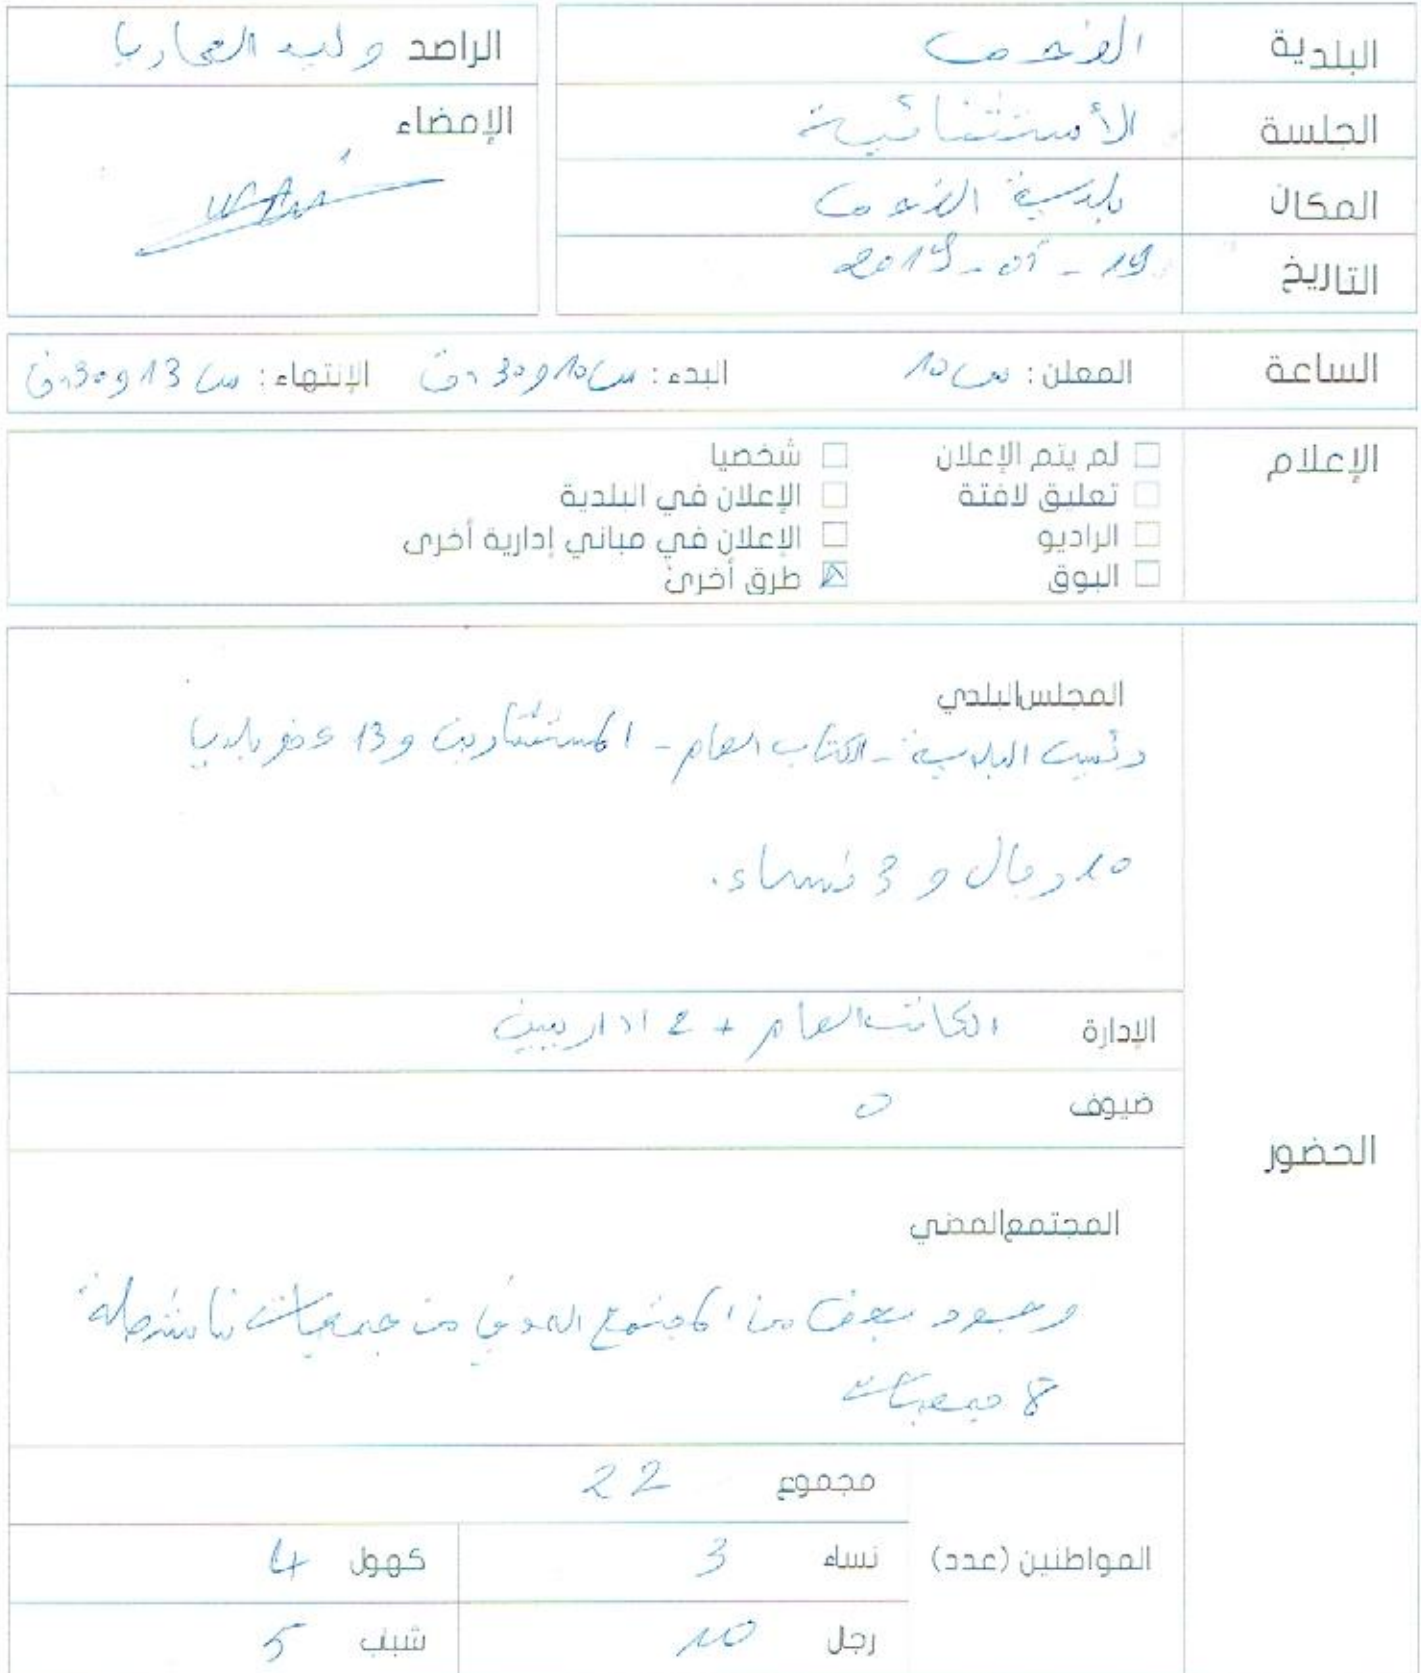 البلدية
الجلسة الأستثنائية
المكان بلدية
التاريخ 19 - 01 - 2019
الراصد وليد
الإمضاء
الساعة المعلن: س 10 البدء: س 10 و 30 دق الإنتهاء: س 13 و 30 دق
الإعلام
☐ لم يتم الإعلان ☐ شخصيا
☐ تعليق لافتة ☐ الإعلان في البلدية
☐ الراديو ☐ الإعلان في مباني إدارية أخرى
☐ البوق ☒ طرق أخرى
الحضور
المجلس البلدي
رئيس البلدية - الكتاب العام - المستشارين و 13 عضو بلديا
10 رجال و 3 نساء.
الإدارة الكاتب العام + 2 اداريين
ضيوف 0
المجتمع المدني
وجود بعض من المجتمع المدني من جمعيات ناشطة
8 جمعيات
المواطنين (عدد)
مجموع 22
نساء 3 كهول 4
رجل 10 شبب 5